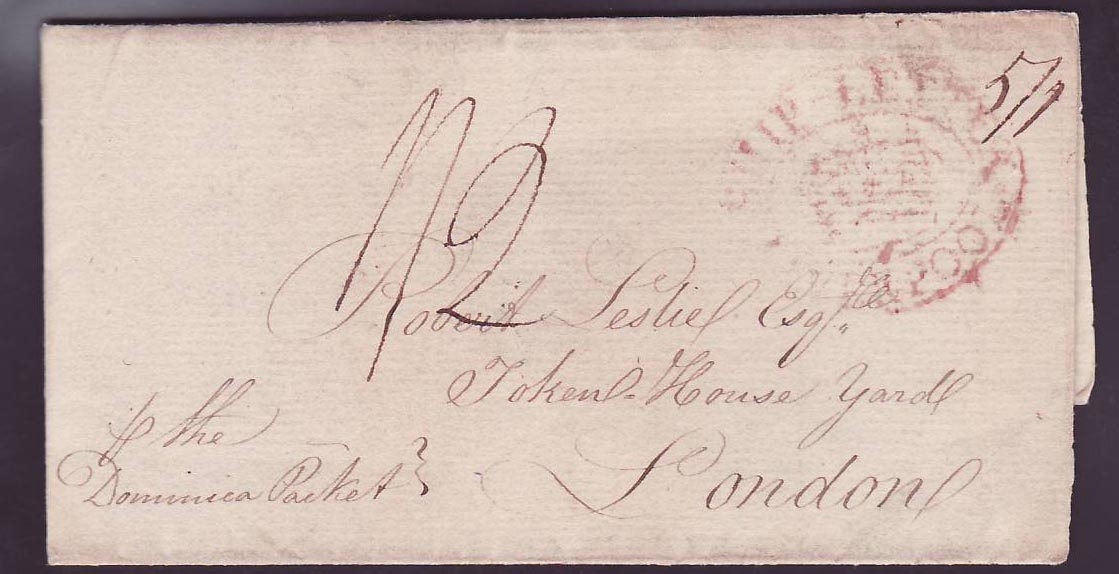 SHIP LETTER
5/1
112
Robert Leslie Esqre
Token-House Yard
London
p the
Dominica Packet